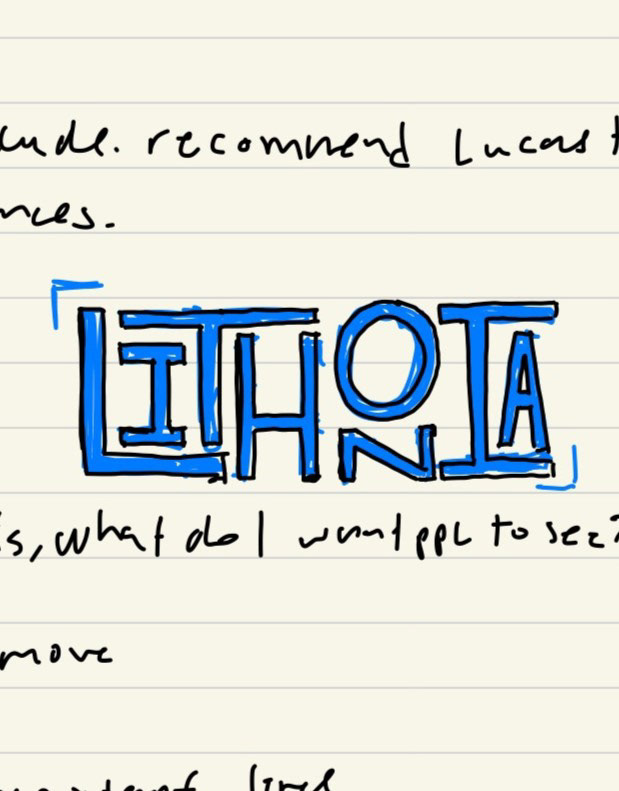 recommend Lucas
LITHONIA
s, what do I want ppl to see?
move